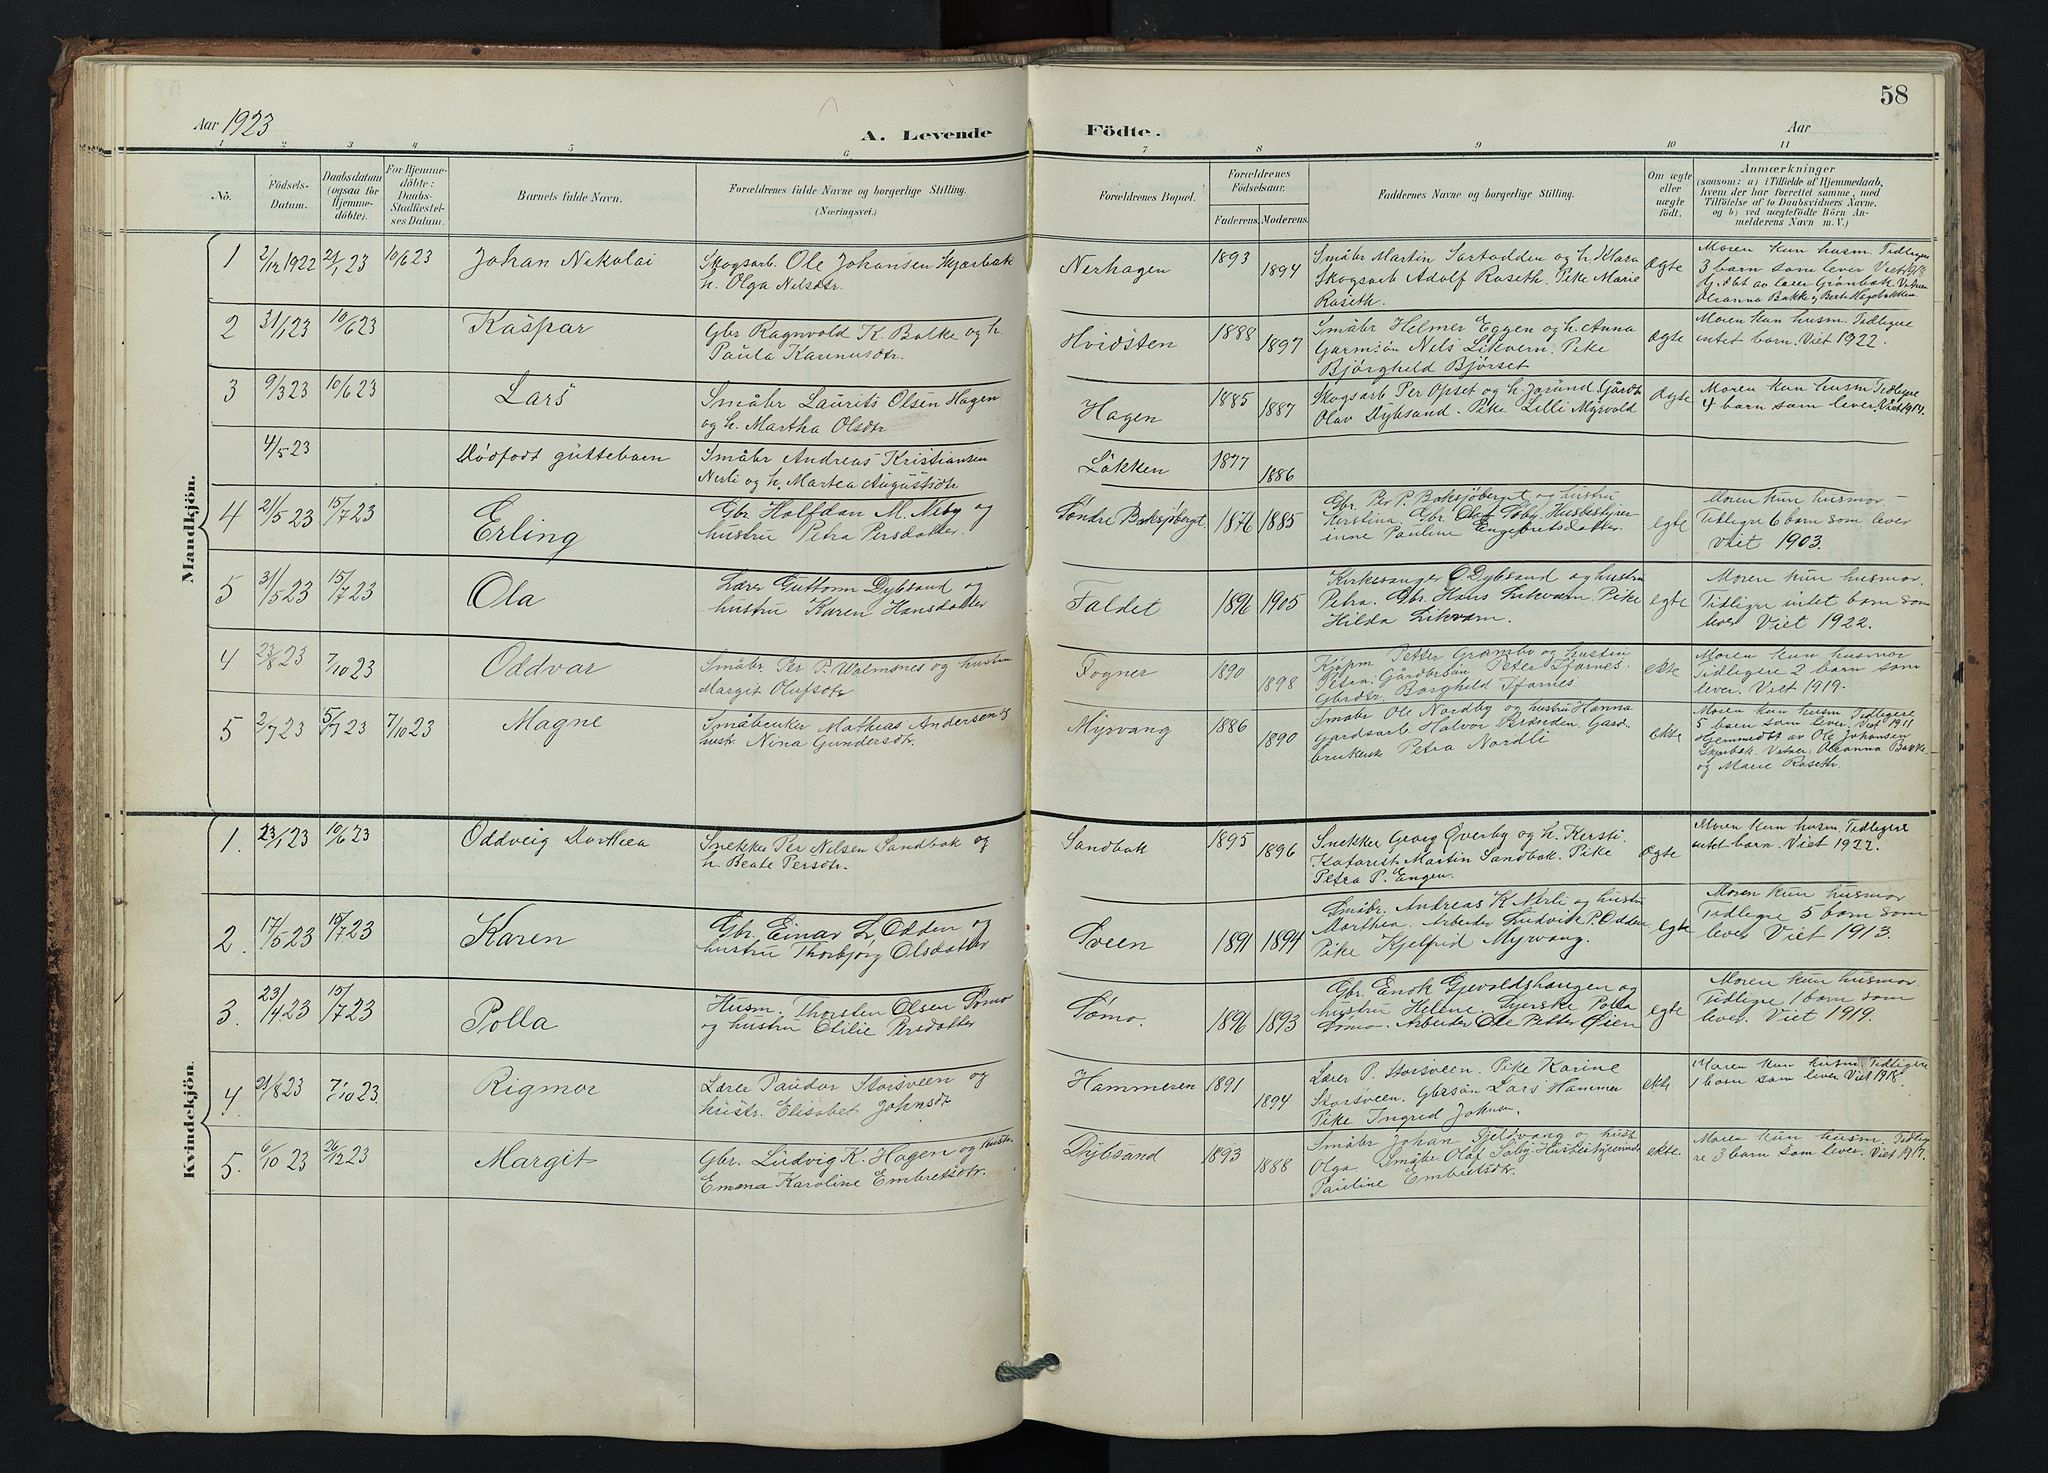 58
Aar 1923
A. Levende
Födte.
Aar
1 2 3 4 5 6 7 8 9 10 11
No.
Födsels-
Datum.
Daabsdatum
(ogsaa for
Hjemme-
döbte).
For Hjemme-
döbte:
Daabs-
Stadfæstel-
ses Datum.
Barnets fulde Navn.
Forældrenes fulde Navne og borgerlige Stilling.
(Næringsvei.)
Forældrenes Bopæl.
Forældrenes
Födselsaar.
Faderens. Moderens.
Faddernes Navne og borgerlige Stilling.
Om ægte
eller
uægte
födt.
Anmærkninger
(saasom: a) i Tilfælde af Hjemmedaab,
hvem der har forrettet samme, med
Tilföielse af to Daabsvidners Navne,
og b) ved uægtefödte Börn An-
melderens Navn m. V.)
Mandkjön.
1 2/12 1922 21/1 23 10/6 23 Johan Nikolai
Skogsarb. Ole Johansen Skjærbak
h. Olga Nilsdtr.
Nerhagen 1893 1894
Småbr Martin Sartodden og h. Klara
Skogsarb Adolf Raseth. Pike Marie
Raseth.
Øgte
Moren kun husm. Tidligere
3 barn som lever
2 31/1 23 10/6 23 Kaspar
Gbr Ragnvald K. Bakke og h.
Paula
Hvidsten 1888 1897
Småbr Helmer Eggen og h. Anna
Nils Likvern. Pike
Bjørghild Bjørset
Øgte
Moren kun husm. Tidligere
intet barn. Viet 1922.
3 9/3 23 10/6 23 Lars
Småbr Laurits Olsen Hagen
og h. Martha Olsdtr
Hagen 1885 1887
Skogsarb Per Opset og h. Jørund.
Olav Dybsand. Pike Lilli Myrvold
Øgte
Moren kun husm. Tidligere
4 barn som lever.
4/5 23 Dødfødt guttebarn
Småbr Andreas Kristiansen
Nerli og h. Martea Augustsdtr
Løkken 1877 1886
4 21/5 23 15/7 23 Erling
Gbr Halfdan M. Neby og
hustru Petra Persdatter.
Søndre Baksjøberget 1876 1885
Gbr. Per P. Baksjøberget og hustru
Kerstina. Gbr. Olaf Søby. Husbestyrer
inne Pauline Engebretsdatter.
egte
Moren kun husmor –
Tidligre 6 barn som lever
Viet 1903.
5 31/5 23 15/7 23 Ola
Lærer Guttorm Dybsand og
hustru Karen Hansdatter
Faldet 1896 1905
Kirkesanger O. Dybsand og hustru
Petra. Gbr. Hans Likvarn. Pike
Hilda Likvarn.
egte
Moren kun husmor.
Tidligre intet barn som
lever Viet 1922.
4 23/8 23 7/10 23 Oddvar
Småbr Per P. Walmsnes og hustru
Margit Olufsdtr
Fogner 1890 1898
Kjøpm Petter Grambo og hustru
Petra. Gårdbrsøn Peter
Gbrdtr. Borghild
ekte
Moren kun husmor
Tidligere 2 barn som
lever. Viet 1919.
5 2/7 23 5/7 23 7/10 23 Magne
Småbruker Mathias Andersen og
hustr. Nina Gundersdtr.
Myrvang 1886 1890
Småbr Ole Nordby og hustru Hanna
Gardsarb. Halvor Brånden. Gard-
brukerske Petra Nordli
ekte
Moren kun husm. Tidligere
5 barn som lever. Viet 1911
Hjemmedøbt av Ole Johansen
Skjærbak. Vitner: Oleanna Bakke
og Marie Raseth.
Kvindekjön.
1. 23/1 23 10/6 23 Oddveig Dorthea
Snekker Per Nilsen Sandbak og
h. Beate Persdtr.
Sandbak 1895 1896
Snekker Georg Øverby og h. Kersti.
Martin Sandbak. Pike
Petra P. Engen.
Øgte
Moren kun husm. Tidligere
intet barn. Viet 1922.
2. 17/5 23 15/7 23 Karen
Gbr. Einar L. Odden og
hustru Thorbjørg Olsdatter
Sveen 1891 1894
Småbr. Andreas K Nerli og hustru
Marthea. Arbeider Ludvik P. Odden
Pike Kjelfrid Myrvang.
egte
Moren kun husmor
Tidligre 5 barn som
lever Viet 1913.
3. 23/4 23 15/7 23 Polla
Husm. Thorsten Olsen Sømo
og hustru Otilie Persdatter
Sømo. 1896 1893
Gbr. Enok Gjevoldshaugen og
hustru Helene. Syerske Polla
Sømo. Arbeider Ole Petter Øien
egte
Moren kun husmor.
Tidligre 1 barn som
lever. Viet 1919.
4. 21/8 23 7/10 23 Rigmor
Lærer Paudor Storsveen og
hustr. Elisabet Johnsdtr
Hammeren 1891 1894
Lærer P. Storsveen. Pike Karine
Storsveen. Gbrsøn Lars Hammer
Pike Ingrid Johnsen.
ekte
Moren kun husm. Tidligere
1 barn som lever Viet 1918
5. 6/10 23 26/12 23 Margit
Gbr. Ludvig K. Hagen og hustr.
Emma Karoline Embretsdtr.
Dybsand 1893 1888
Småbr Johan Fjeldvang og hust
Olga. Småbr. Olaf Søby. Husbestyrerinde
Pauline Embretsdtr.
ekte.
Moren kun husm. Tidlige
re 3 barn som lever. Viet 1917.